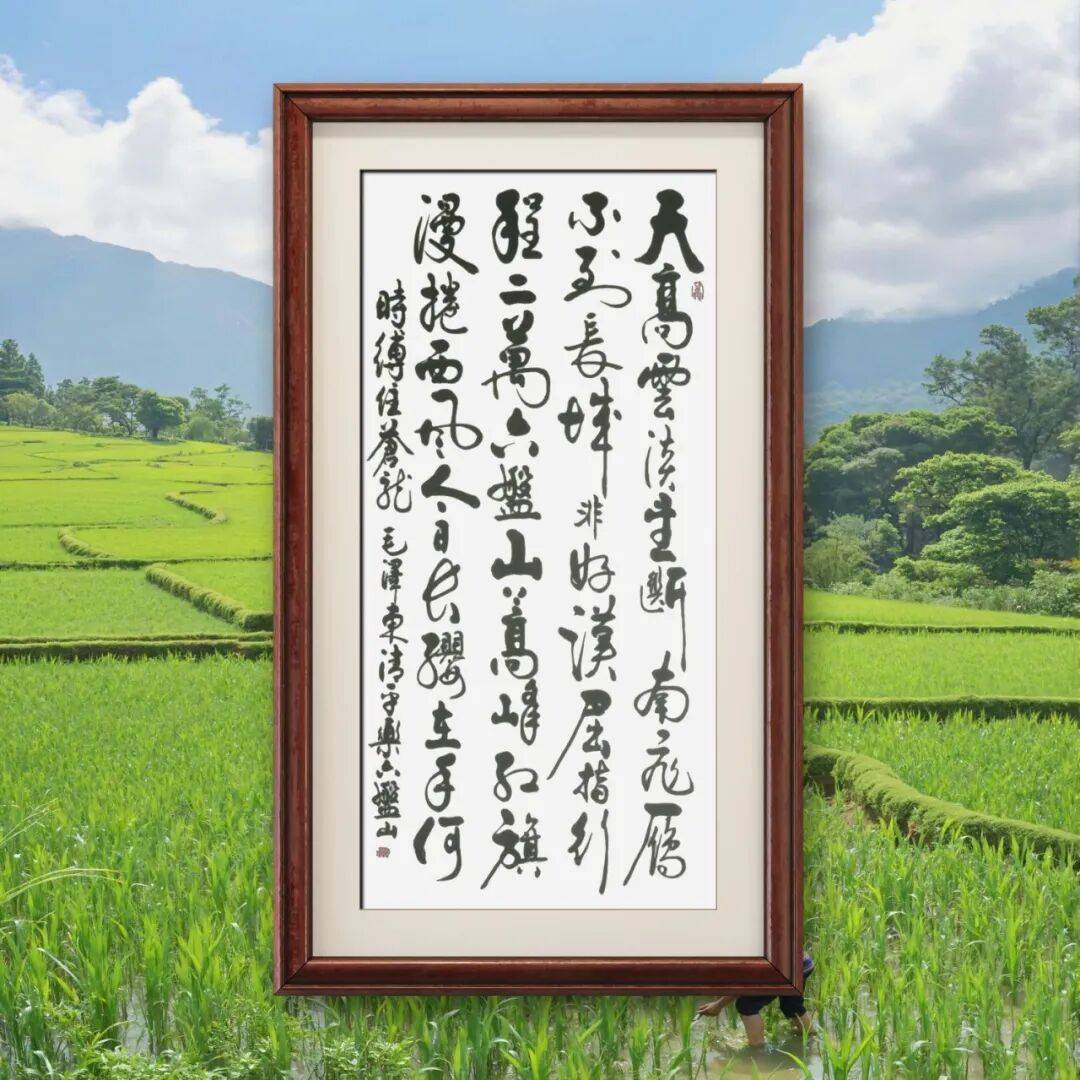 天高雲淡望斷南飛雁
不到長城非好漢屈指行
程二萬六盤山高峰紅旗
漫捲西風今日長纓在手何
時縛住蒼龍 毛澤東清平樂六盤山